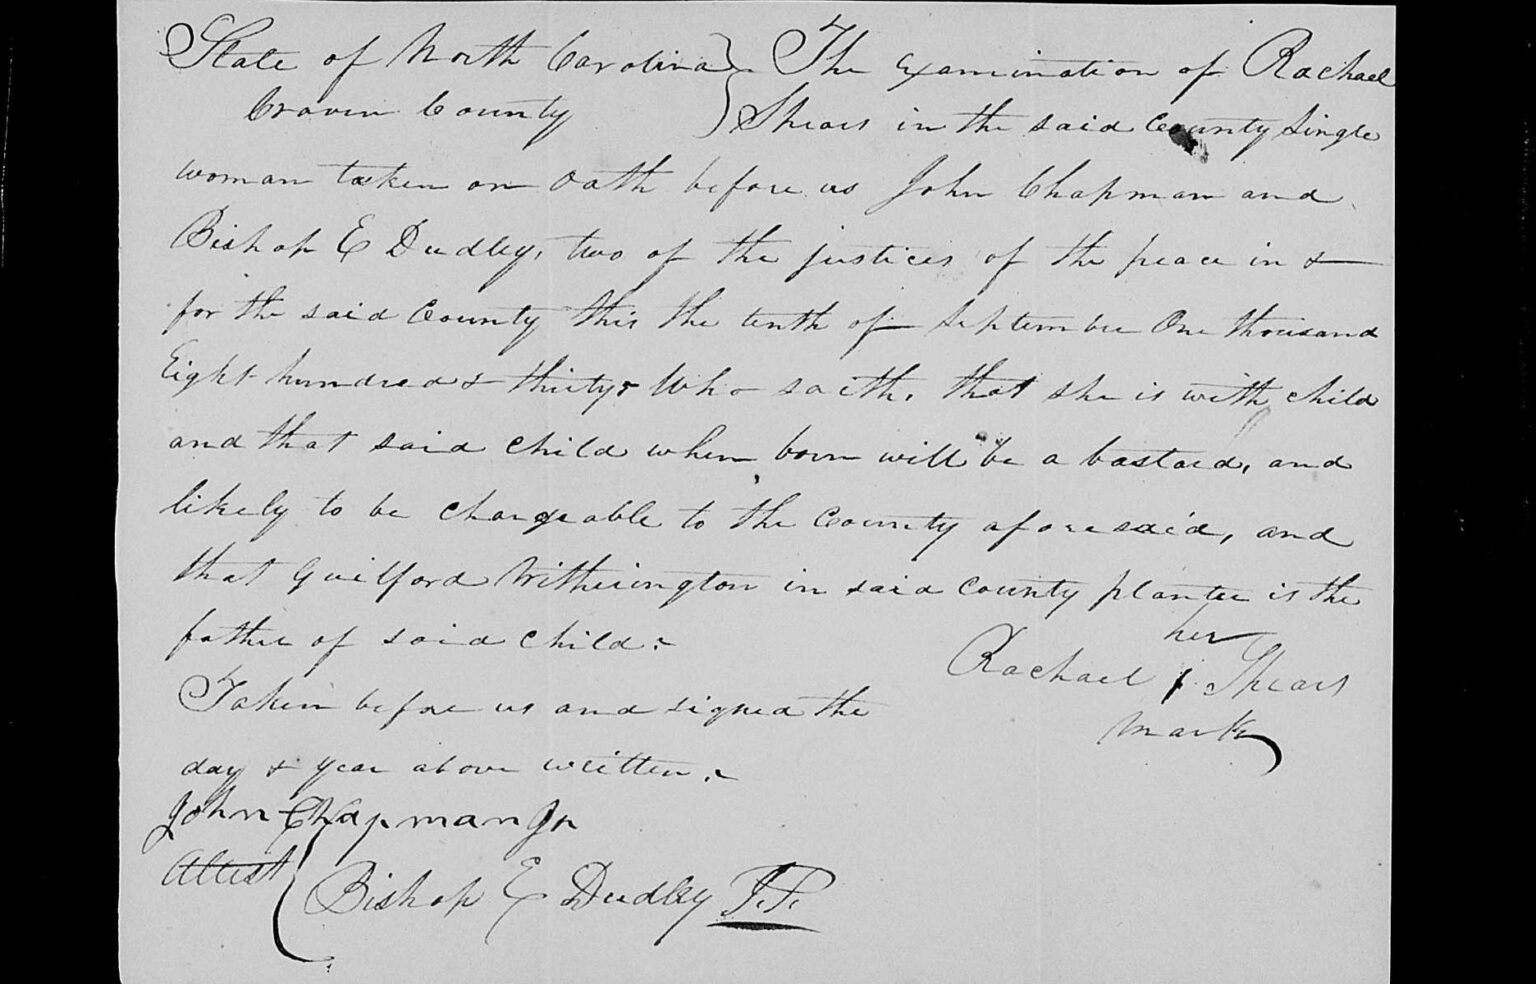 State of North Carolina } The examination of Rachael
Craven County } Shears in the said County Single
woman taken on oath before us John Chapman and
Bishop E Dudley, two of the justices of the peace in &
for the said County this the tenth of September One thousand
Eight hundred & thirty. Who saith, that she is with child
and that said child when born will be a bastard, and
likely to be chargeable to the County aforesaid, and
that Guilford Witherington in said County planter is the
father of said child.
her
Rachael Shears
mark
Taken before us and signed the
day & year above written.
John Chapman Jr
Attest
Bishop E Dudley J.P.